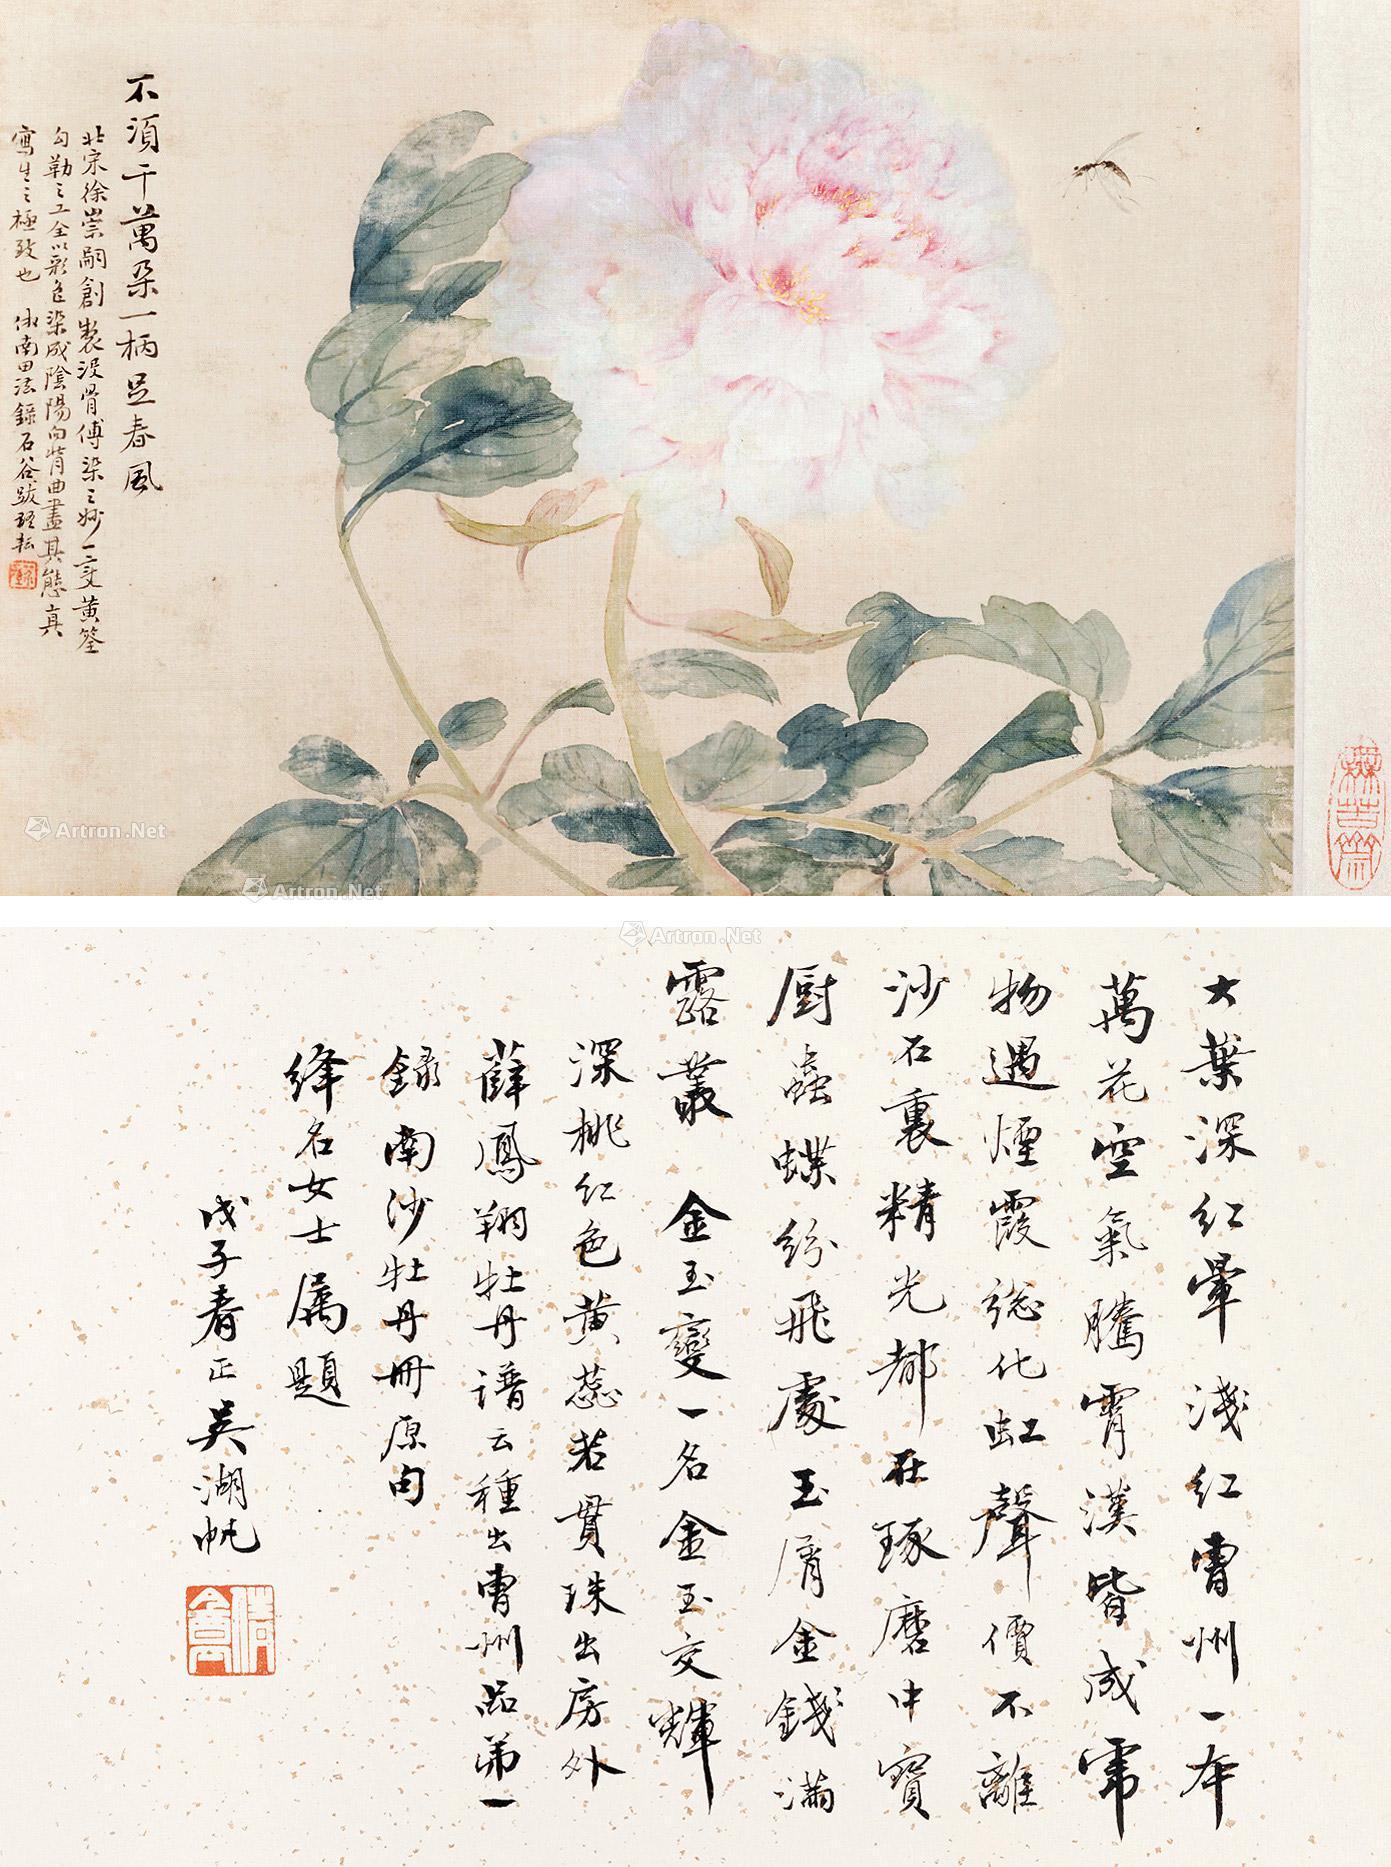 不須千萬朶一柄足春風
北宋徐崇嗣創製沒骨傅染之妙一變黃筌
勾勒之工全以彩色染成陰陽向背曲盡其態真
寫生之極致也 倣南田法錄石谷跋語
Artron.Net
Artron.Net
Artron.Net
大葉深紅暈淺紅曹州一本
萬花空氣騰霄漢皆成霱
物遇煙霞總化虹聲價不離
沙石裏精光都在琢磨中寶
廚蟲蝶紛飛處玉屑金錢滿
露叢 金玉變一名金玉交輝
深桃紅色黃蕊若貫珠出房外
薛鳳翔牡丹譜云種出曹州品第一
錄南沙牡丹冊原句
絳名女士屬題
戊子春正吳湖帆